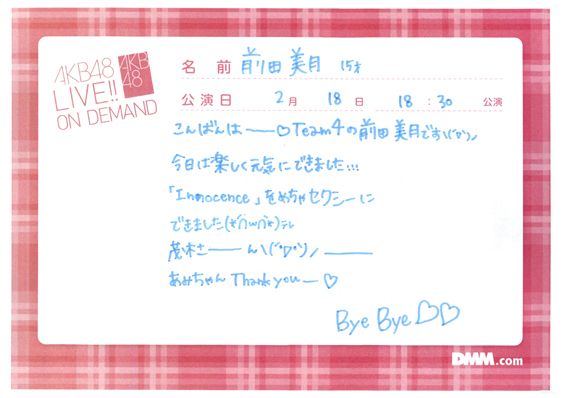 AKB48
LIVE!!
ON DEMAND
AKB
48
名 前 前田 美月 15才
公演日 2月 18日 18:30 公演
こんばんは――♡Team4の前田美月です\(^o^)ノ
今日は楽しく元気にできました…
「Innocence」をめちゃセクシーに
できました(*ノωノ*)テレ
茂木さ――ん\(^o^)ノ ――
あみちゃん Thank you―♡
Bye Bye♡♡
DMM.com